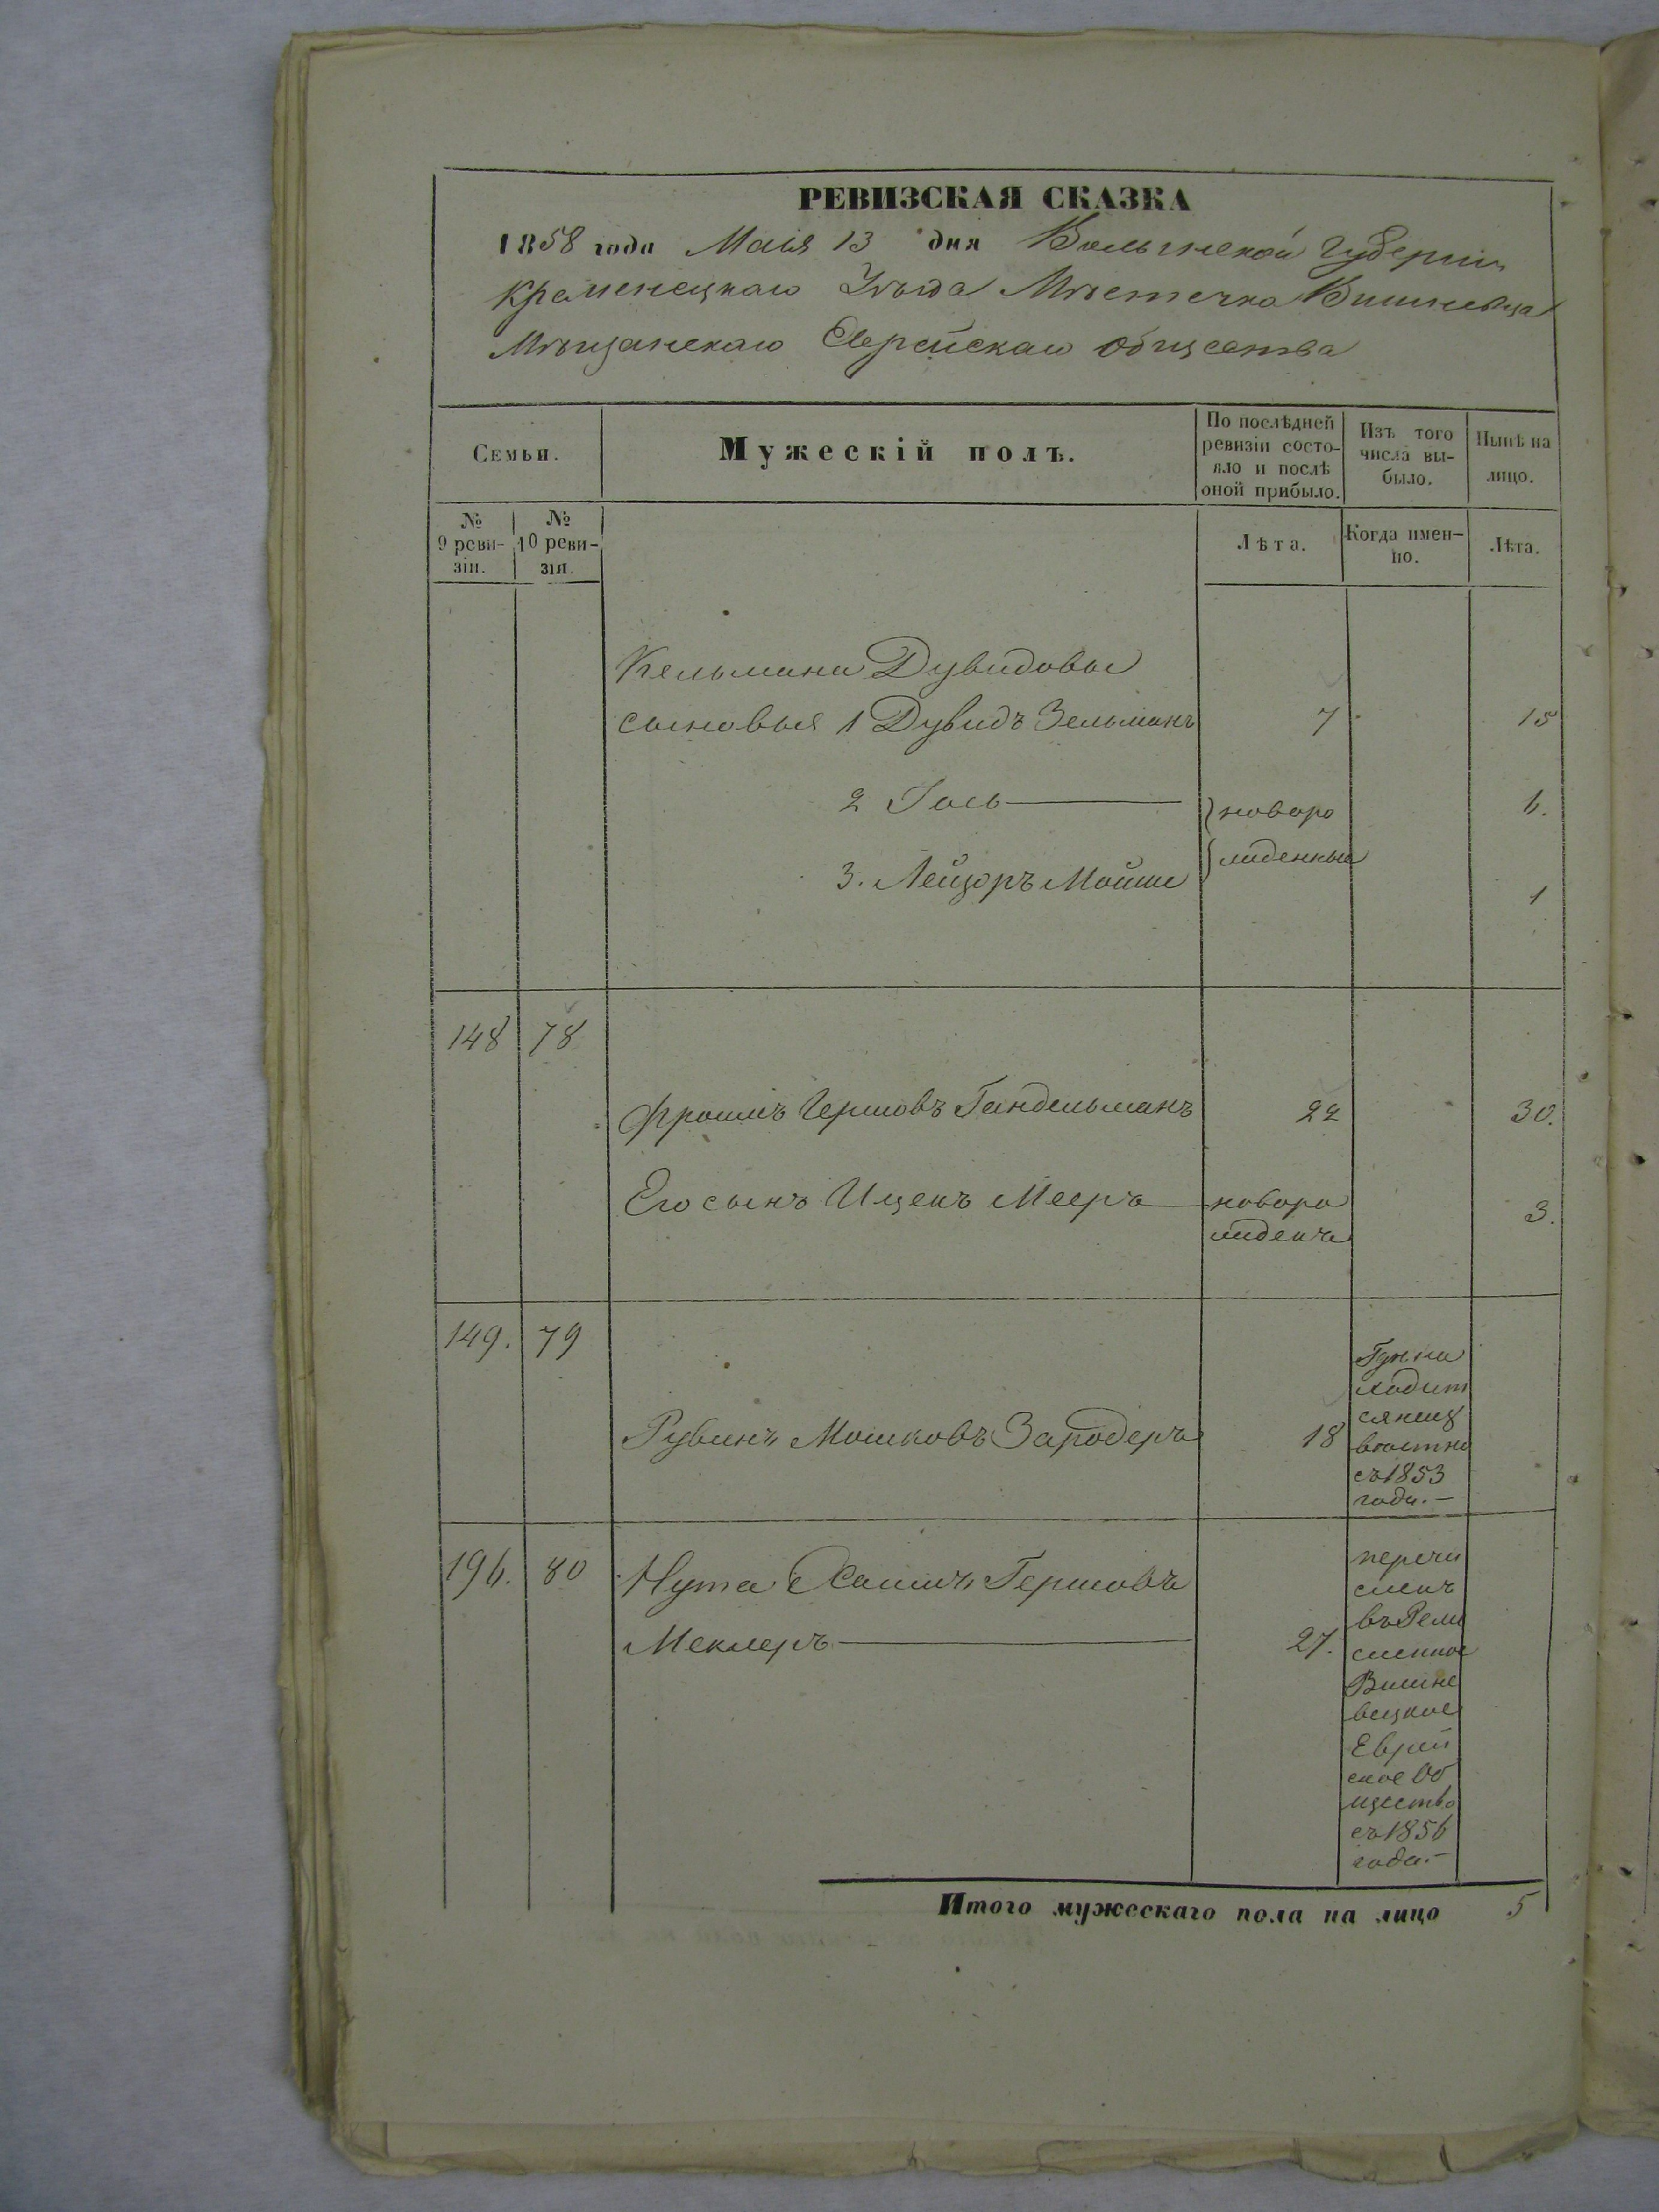 РЕВИЗСКАЯ СКАЗКА
1858 года Маія 13 дня Волынской Губерніи
Кременецкаго Уѣзда Мѣстечка Вишневца
Мѣщанскаго Еврейскаго общества
Семьи.
Мужескій полъ.
По послѣдней
ревизіи состо-
яло и послѣ
оной прибыло.
Изъ того
числа вы-
было.
Нынѣ на
лицо.
№
9 реви-
зіи.
№
10 реви-
зія.
Лѣта.
Когда имен-
но.
Лѣта.
Кельмана Дувидовы
сыновья 1 Дувидъ Зельманъ 7 15
2 Іось новоро 6.
3. Лейзоръ Мойше жденные 1
148 78
Фроимъ Гершовъ Гандельманъ 22 30.
Его сынъ Ицекъ Мееръ новоро 3.
жденъ
149. 79
Рувинъ Мошковъ Зародеръ 18
Гдѣ на
ходит
ся неиз
вѣстно
съ 1853
года.-
196. 80 Нута Хаимъ Гершовъ
Меклеръ 27.
перечи
сленъ
въ Реме
сленное
Вишне
вецкое
Еврей
ское Об
щество
съ 1856
года.-
Итого мужескаго пола на лицо 5